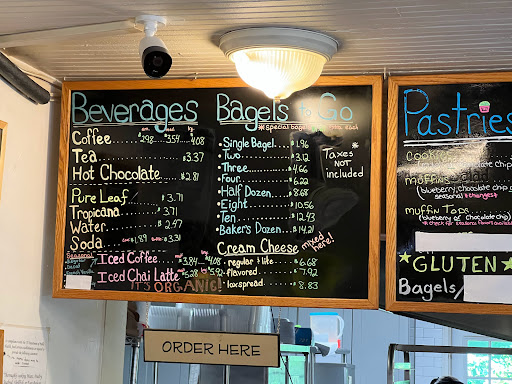 Beverages
sm med lg
Coffee 2.98 3.54 4.08
Tea $3.37
Hot Chocolate $2.81
Pure Leaf $3.71
Tropicana 3.71
Water $2.47
Soda $1.89 $3.31
Seasonal
Iced Coffee $3.84 4.08
Iced Chai Latte $5.28 5.92
IT'S ORGANIC!
Bagels to Go
*Special bagels each
Single Bagel $1.96
Two 3.12
Three 4.66
Four 6.22
Half Dozen 8.68
Eight 10.56
Ten 12.43
Baker's Dozen 14.21
*Taxes
NOT
included
Cream Cheese mixed here!
regular + lite $6.68
flavored $7.92
lox spread 8.83
Pastries
Cookies
chocolate chip
(blueberry, chocolate chip
seasonal *changes*
muffin Tops
(blueberry or chocolate chip)
GLUTEN
Bagels/
ORDER HERE